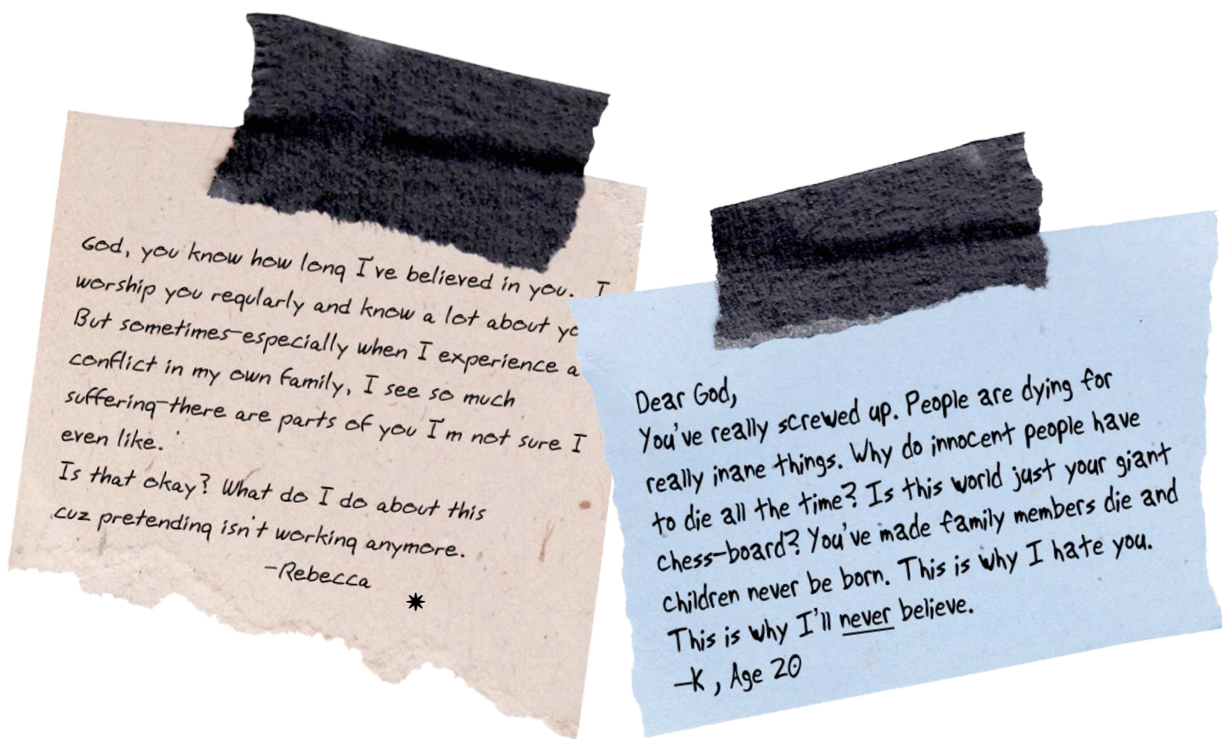 God, you know how long I've believed in you. I
worship you regularly and know a lot about yo
But sometimes-especially when I experience a
conflict in my own family, I see so much
suffering-there are parts of you I'm not sure I
even like.
Is that okay? What do I do about this
cuz pretending isn't working anymore.
-Rebecca
Dear God,
You've really screwed up. People are dying for
really inane things. Why do innocent people have
to die all the time? Is this world just your giant
chess-board? You've made family members die and
children never be born. This is why I hate you.
This is why I'll never believe.
-K, Age 20